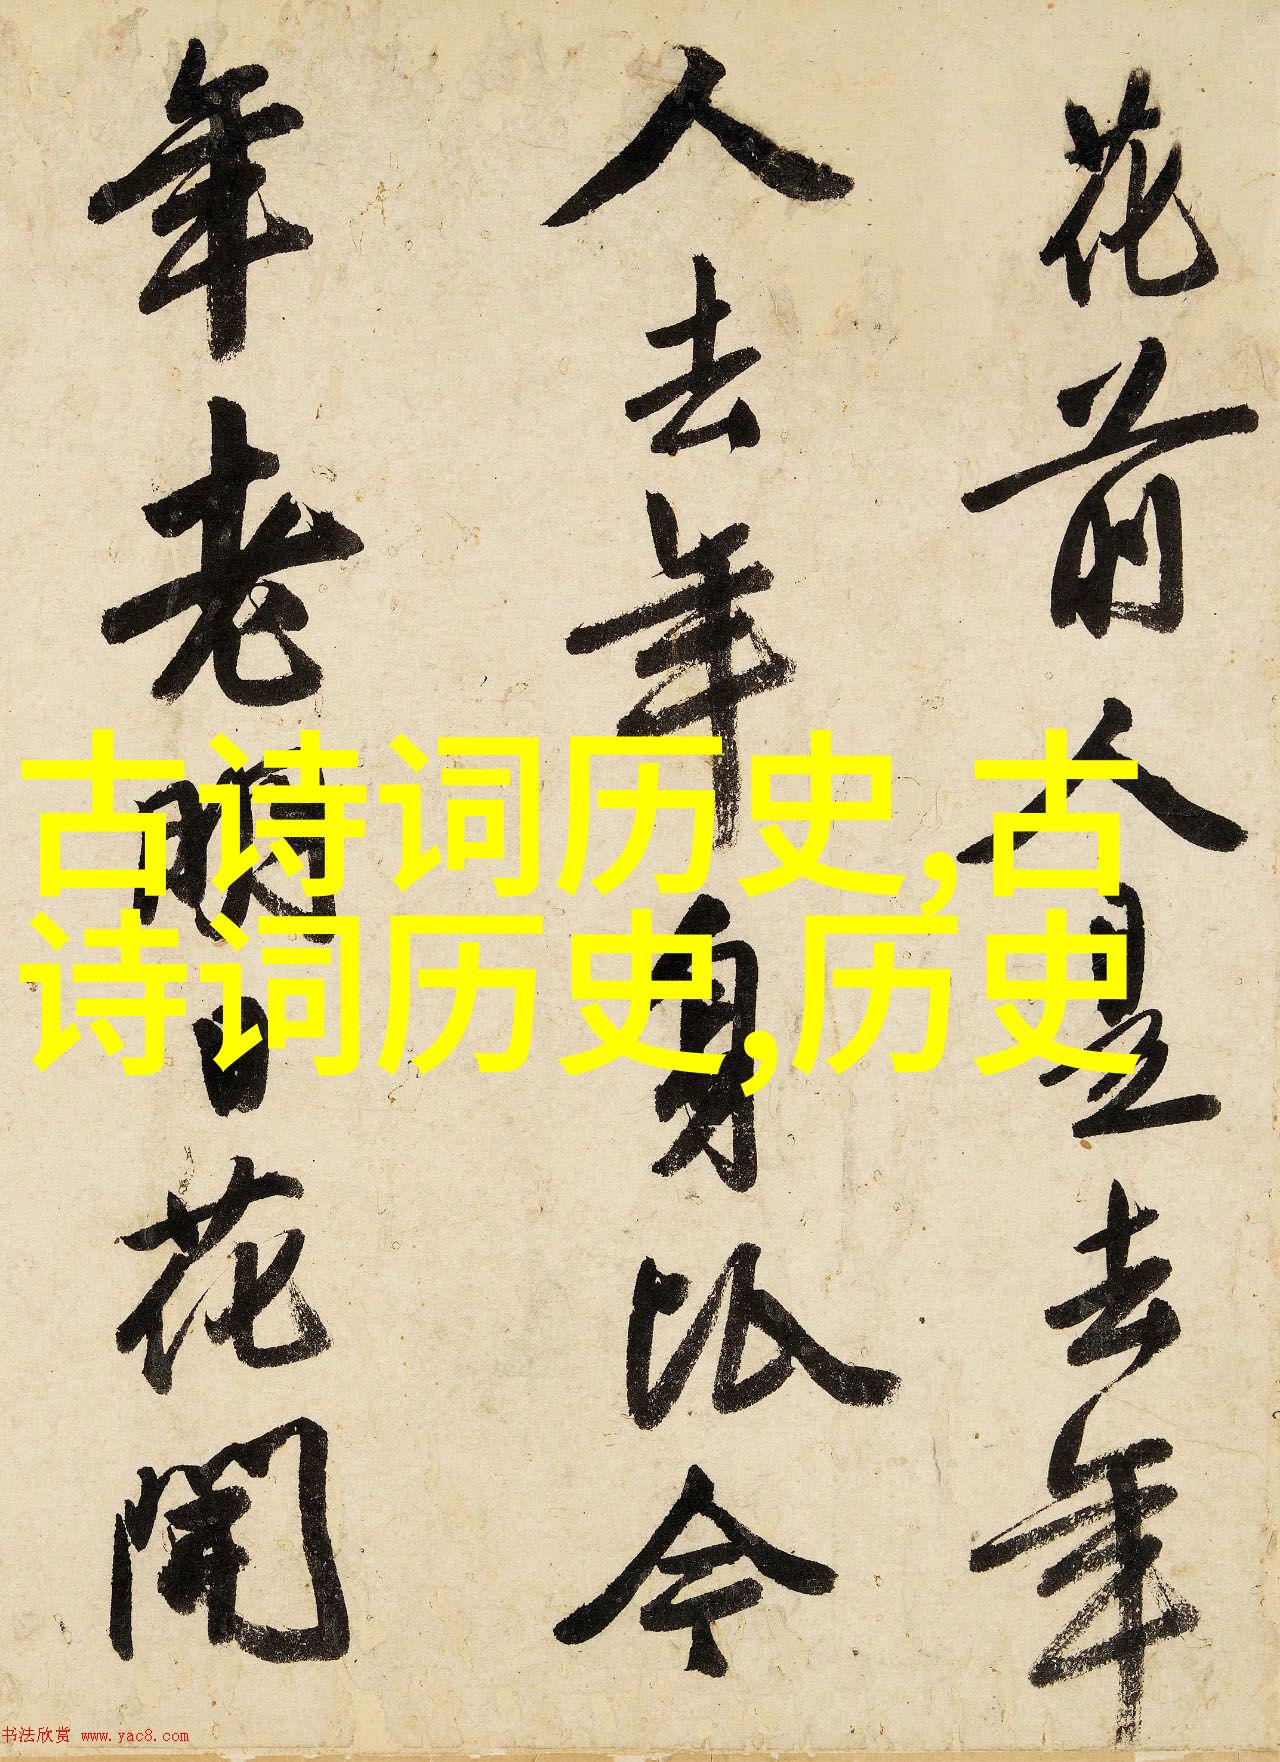 花前人是去年
人去年身比今
年老明日花開
古诗词历史,古
诗词历史,历史
书法欣赏 www.yac8.com